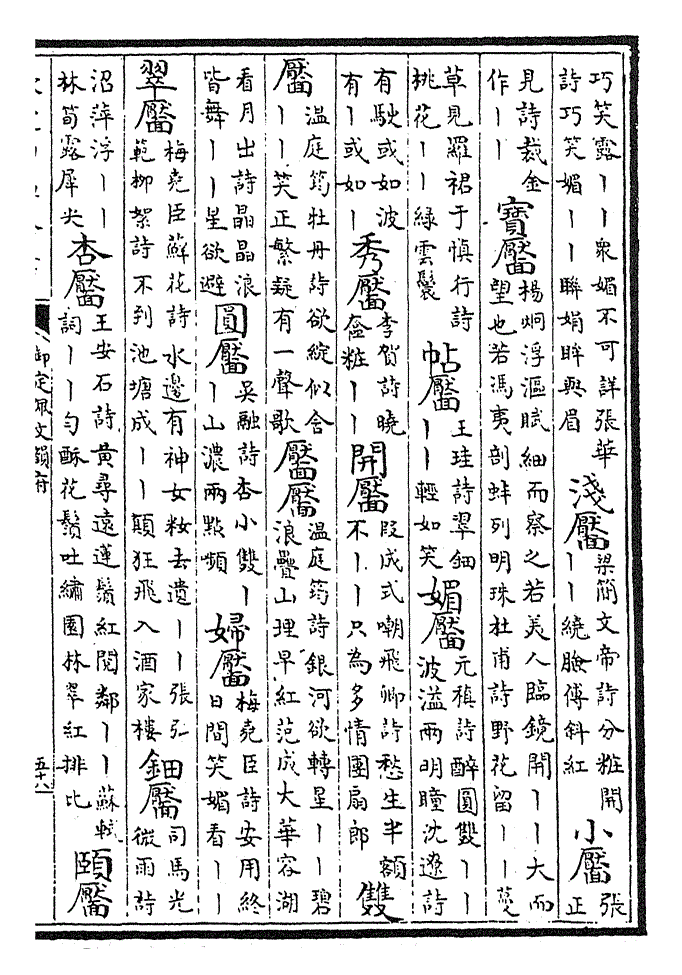 巧笑露丨丨衆媚不可詳張華
詩巧笑媚丨丨眸娟眸與眉
淺靨
梁簡文帝詩分粧開
丨丨繞臉傅斜紅
小靨
張
正
見詩裁金
作丨丨
寶靨
楊炯浮漚賦細而察之若美人臨鏡開丨丨大而
望也若馮夷剖蚌列明珠杜甫詩野花留丨丨蔓
草見羅裙于慎行詩
桃花丨丨綠雲鬟
帖靨
王珪詩翠鈿
丨丨輕如笑
媚靨
元稹詩醉圓雙丨丨
波溢兩明瞳沈遼詩
有駛或如波
有丨或如丨
秀靨
李賀詩曉
奩粧丨丨
開靨
段成式嘲飛卿詩愁生半額
不丨丨只為多情團扇郎
雙
靨
溫庭筠牡丹詩欲綻似含
丨丨笑正繁疑有一聲歌
靨靨
溫庭筠詩銀河欲轉星丨丨碧
浪疊山埋早紅范成大華容湖
看月出詩晶晶浪
皆舞丨丨星欲避
圓靨
吳融詩杏小雙丨
丨山濃兩點嚬
婦靨
梅堯臣詩安用終
日間笑媚看丨丨
翠靨
梅堯臣蘚花詩水邊有神女粧去遺丨丨張弘
範柳絮詩不到池塘成丨丨顛狂飛入酒家樓
鈿靨
司馬光
微雨詩
沼萍浮丨丨
林筍露犀尖
杏靨
王安石詩黃尋遠蓮鬚紅閱鄰丨丨蘇軾
詞丨丨勻酥花鬚吐繡園林翠紅排比
頤靨
御定佩文韻府